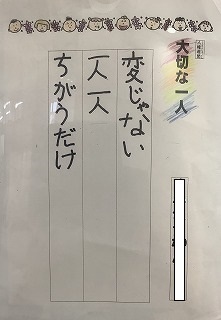 大切な一人
変じゃない
一人一人
ちがうだけ